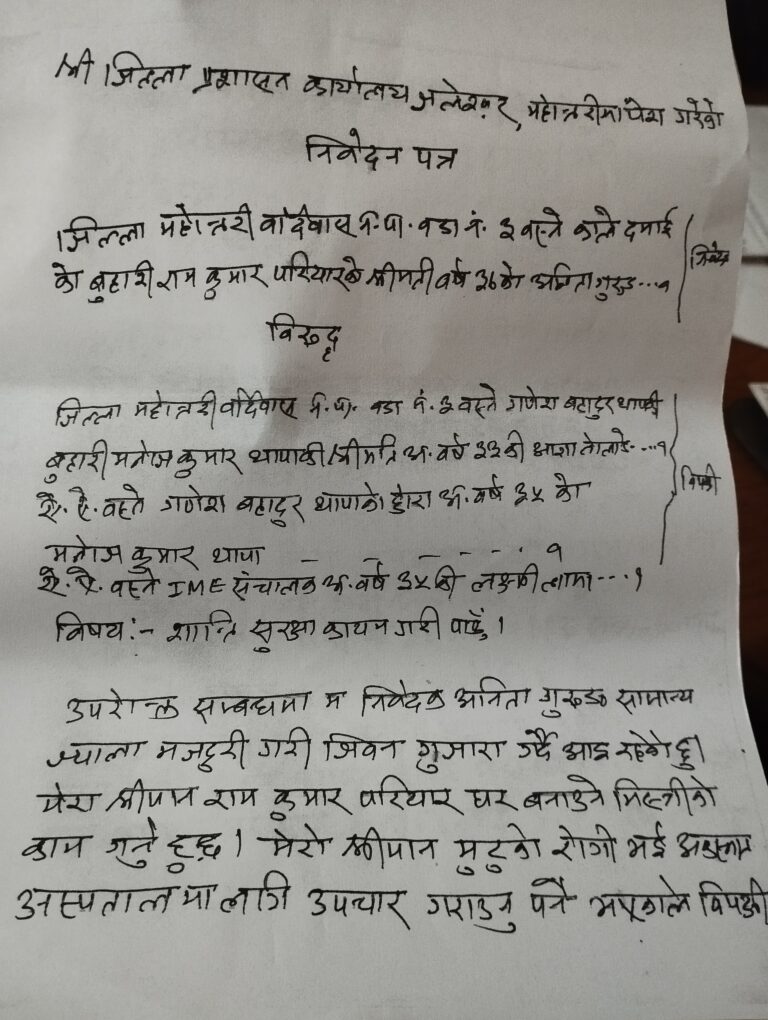 श्री जिल्ला प्रशासन कार्यालय जलेश्वर, महोत्तरीमा पेश गरेको
निवेदन पत्र
जिल्ला महोत्तरी बर्दिवास न.पा. वडा नं. ३ बस्ने काले दमाई
को बुहारी राम कुमार परियारको श्रीमती वर्ष ३६ को अनिता गुरुङ...१
निवेदक
विरुद्ध
जिल्ला महोत्तरी बर्दिवास न.पा. वडा नं. ३ बस्ने गणेश बहादुर थापाकी
बुहारी मनोज कुमार थापाकी श्रीमति अ. वर्ष ३३ की आशा ...१
ऐ. ऐ. बस्ने गणेश बहादुर थापाको छोरा अ. वर्ष ३५ को
विपक्षी
मनोज कुमार थापा - - - - - . १
ऐ. ऐ. बस्ने IME संचालक अ. वर्ष ३५ की लक्ष्मी लामा...१
विषय :- शान्ति सुरक्षा कायम गरी पाउँ ।
उपरोक्त सम्बन्धमा म निवेदक अनिता गुरुङ सामान्य
ज्याला मजदुरी गरी जिवन गुजारा गर्दै आइ रहेको छु।
मेरा श्रीमान राम कुमार परियार घर बनाउने मिस्त्रीको
काम गर्नु हुन्छ । मेरो श्रीमान मुटुको रोगी भई
अस्पतालमा लागि उपचार गराउनु पर्ने भएकाले विपक्षी